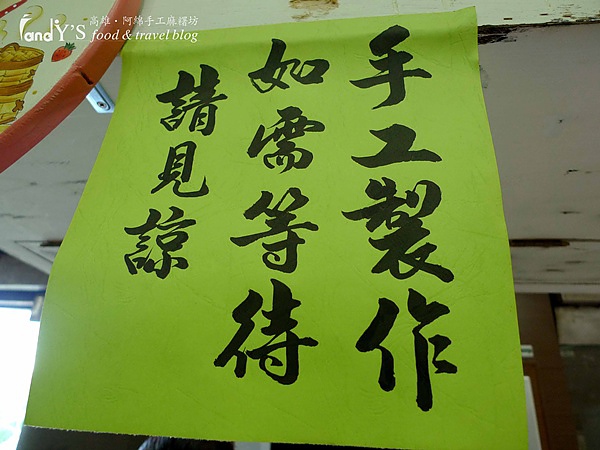 手工製作
如需等待
請見諒
FandY'S
高雄·阿綿手工麻糬坊
food & travel blog